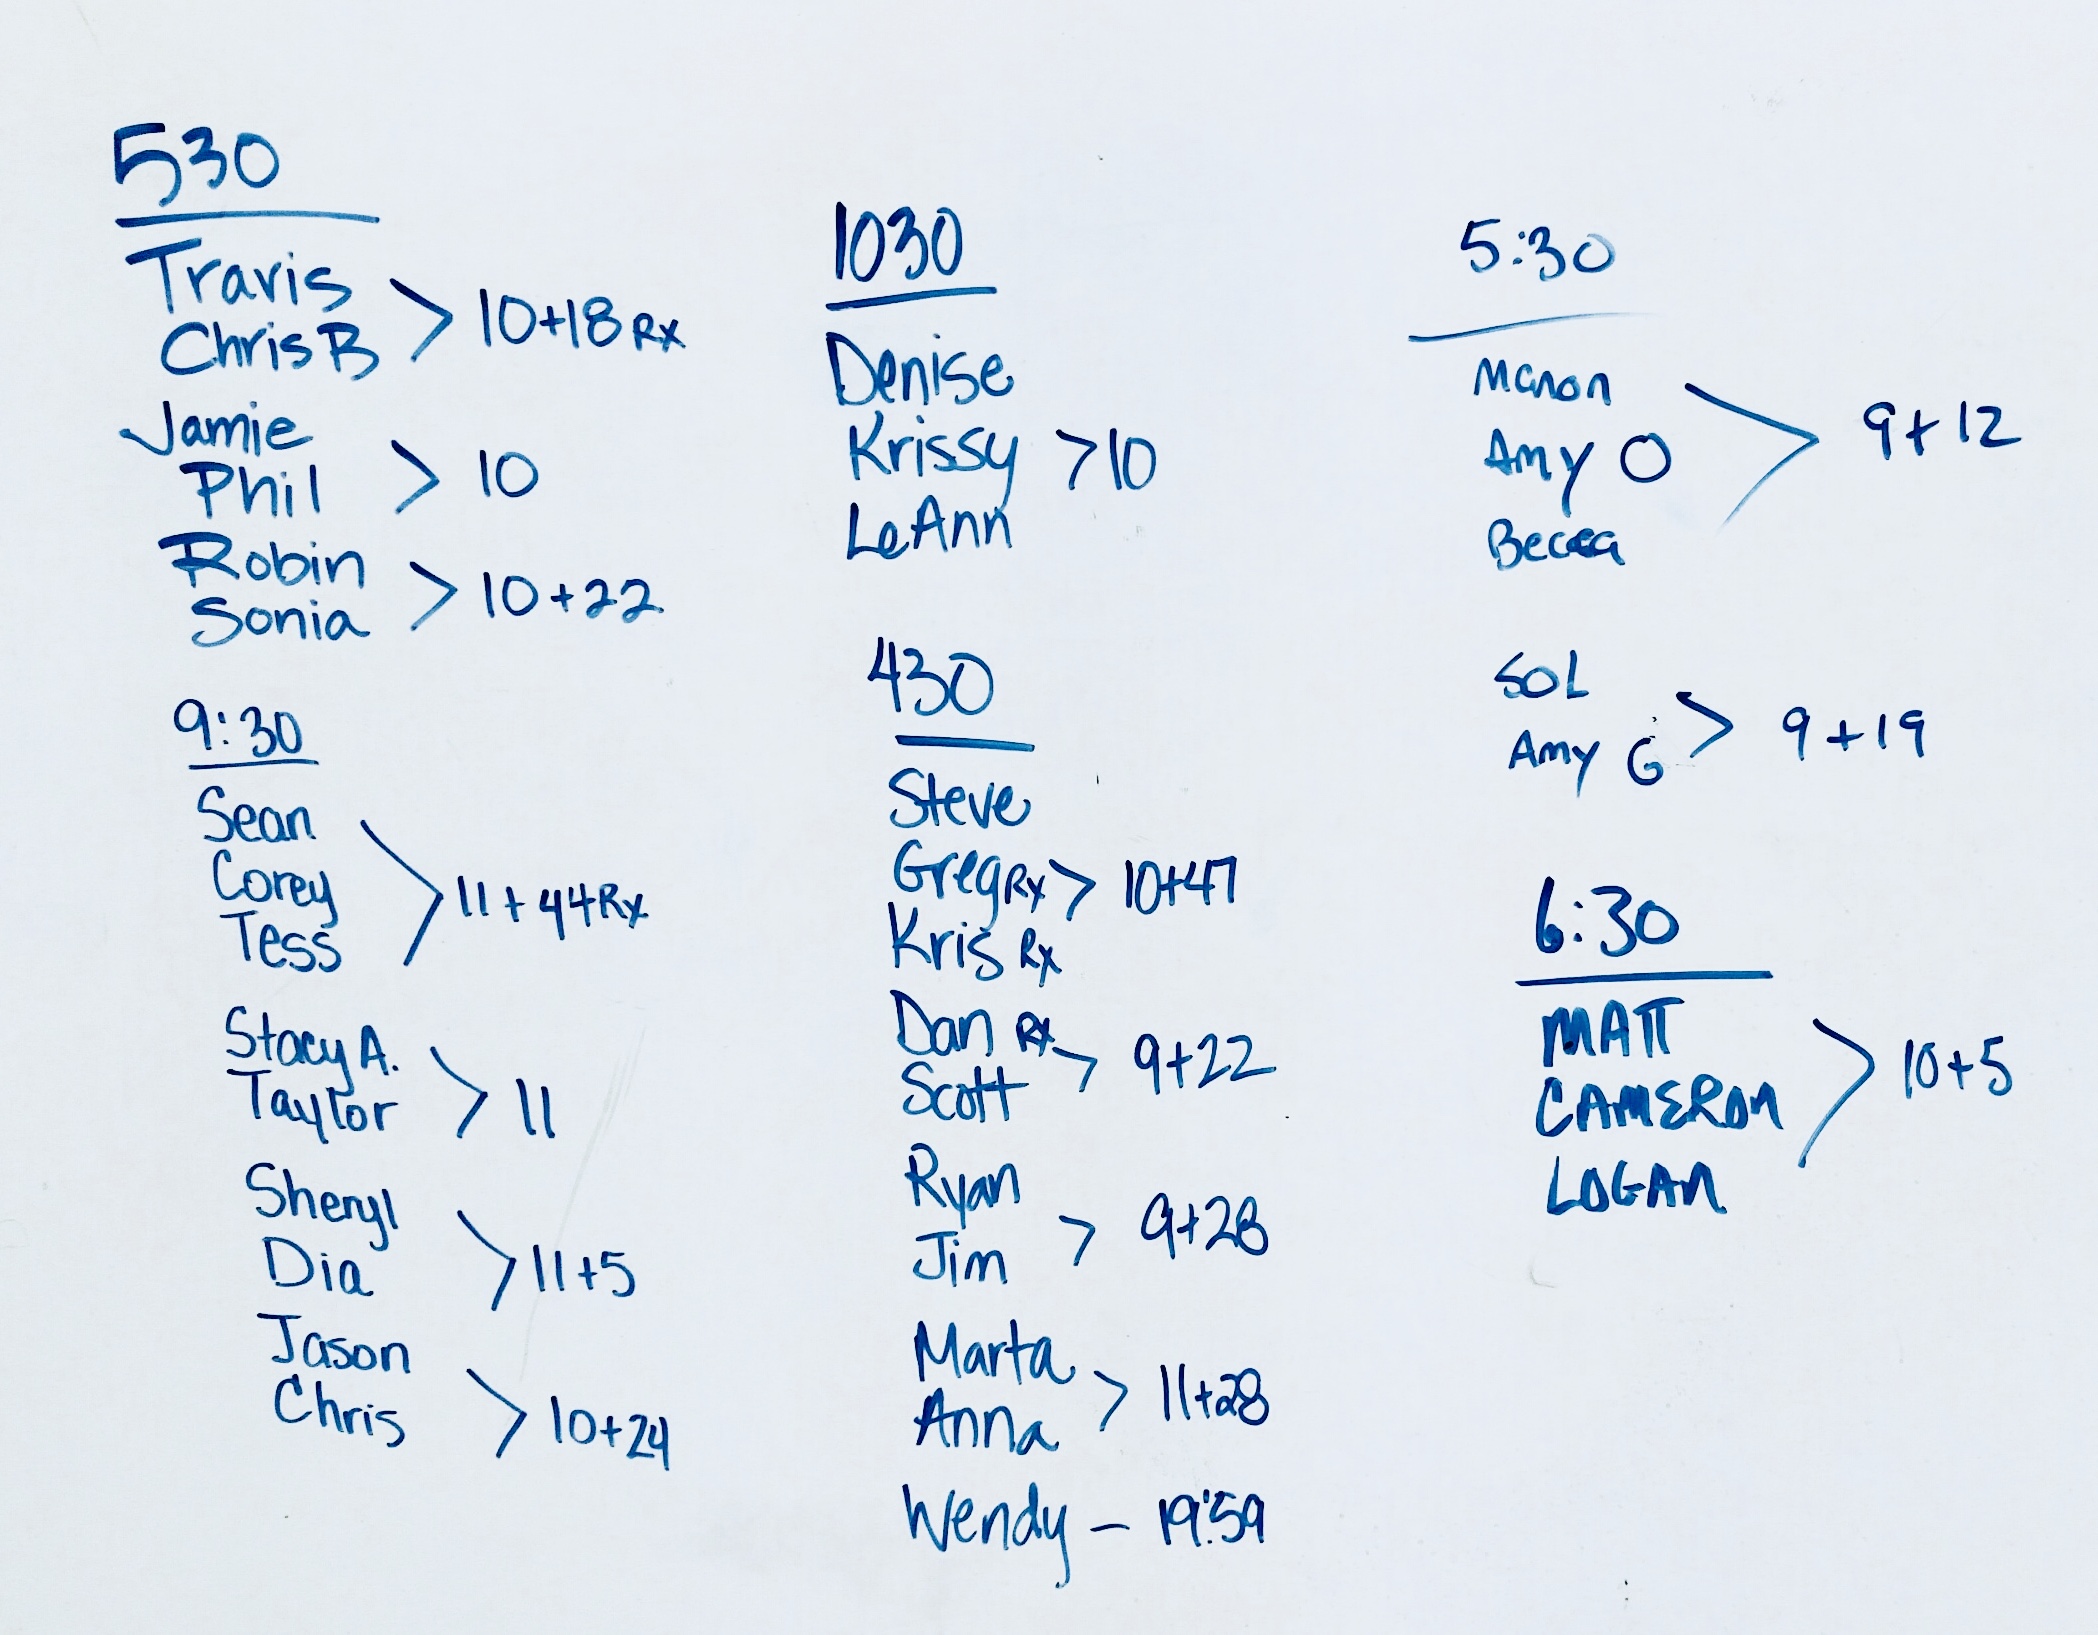 530
Travis
Chris B
> 10+18 Rx
Jamie
Phil
> 10
Robin
Sonia
> 10+22
9:30
Sean
Corey
Tess
> 11+44 Rx
Stacy A.
Taylor
> 11
Sheryl
Dia
> 11+5
Jason
Chris
> 10+24
1030
Denise
Krissy > 10
LeAnn
430
Steve
Greg Rx > 10+47
Kris Rx
Dan Rx
Scott
> 9+22
Ryan
Jim
> 9+28
Marta
Anna
> 11+28
Wendy – 19:59
5:30
Manon
Amy O
Becca
> 9+12
SOL
Amy G
> 9+19
6:30
MATT
CAMERON
LOGAN
> 10+5